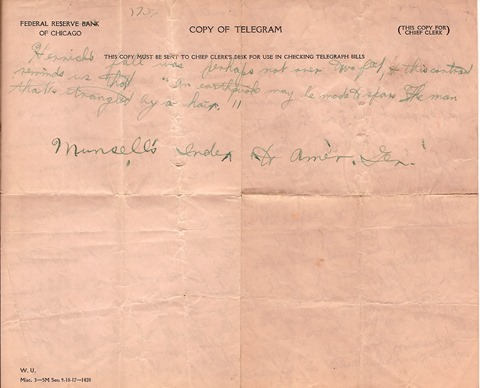 FEDERAL RESERVE BANK
OF CHICAGO
COPY OF TELEGRAM
(THIS COPY FOR
CHIEF CLERK)
THIS COPY MUST BE SENT TO CHIEF CLERK'S DESK FOR USE IN CHECKING TELEGRAPH BILLS
Herrick's fall was perhaps not over two feet, & this
reminds us that "An earthquake may be made to spare the man
that's strangled by a hair."
Munsell's Index to Amer. Gen.
W. U.
Misc. 3—5M Sets 9-18-17—1828